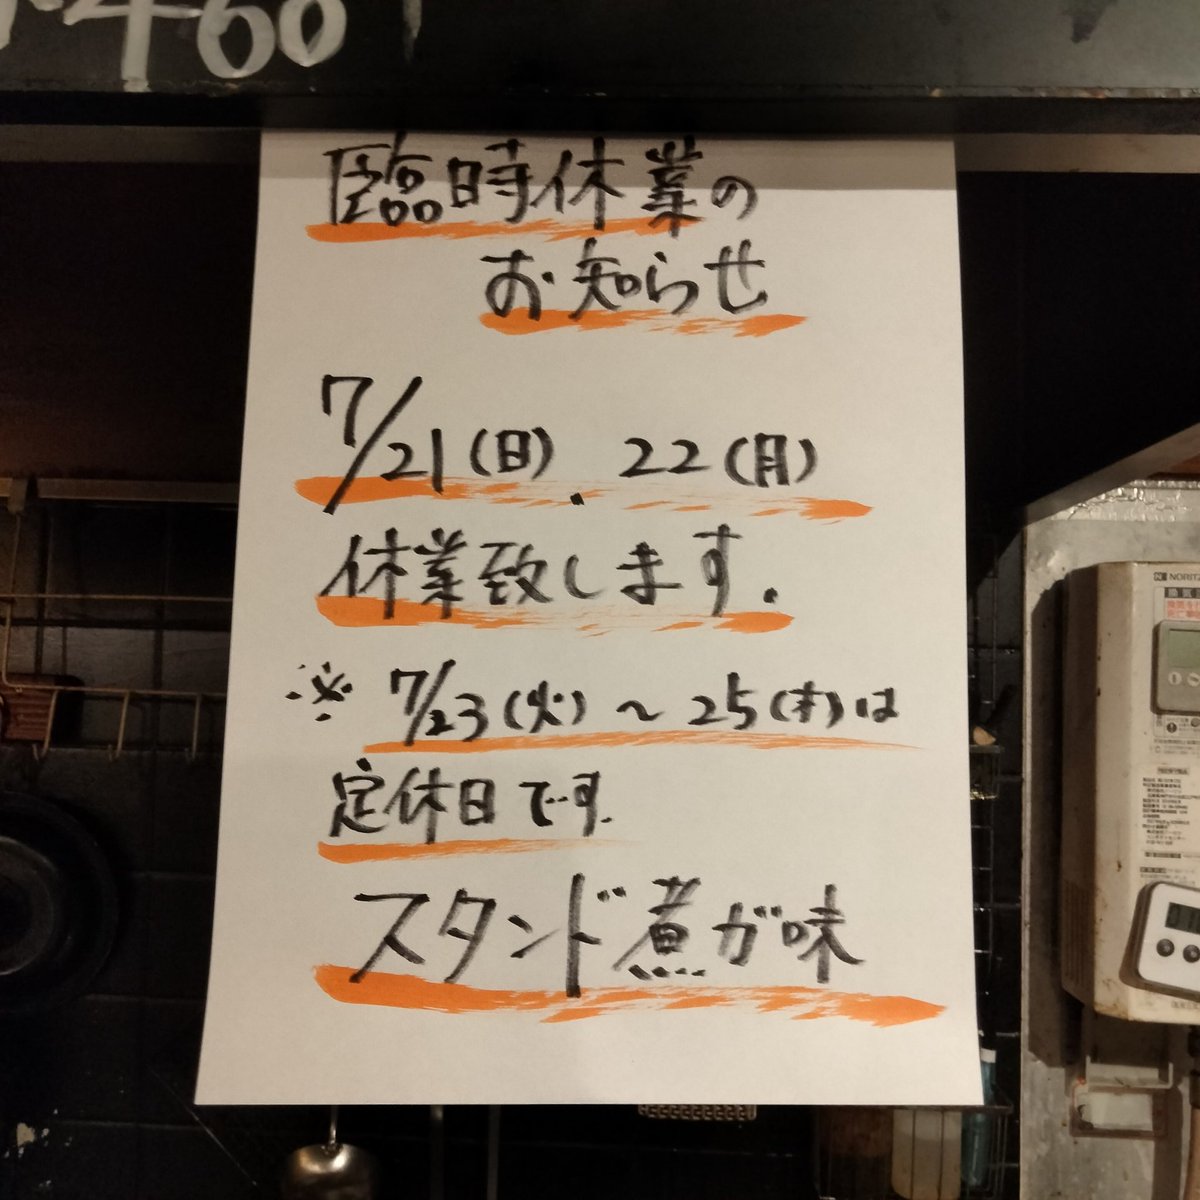 460
臨時休業の
お知らせ
7/21(日).22(月)
休業致します.
※ 7/23(火)～25(木)は
定休日です.
スタンド煮が味
NORITZ
換気